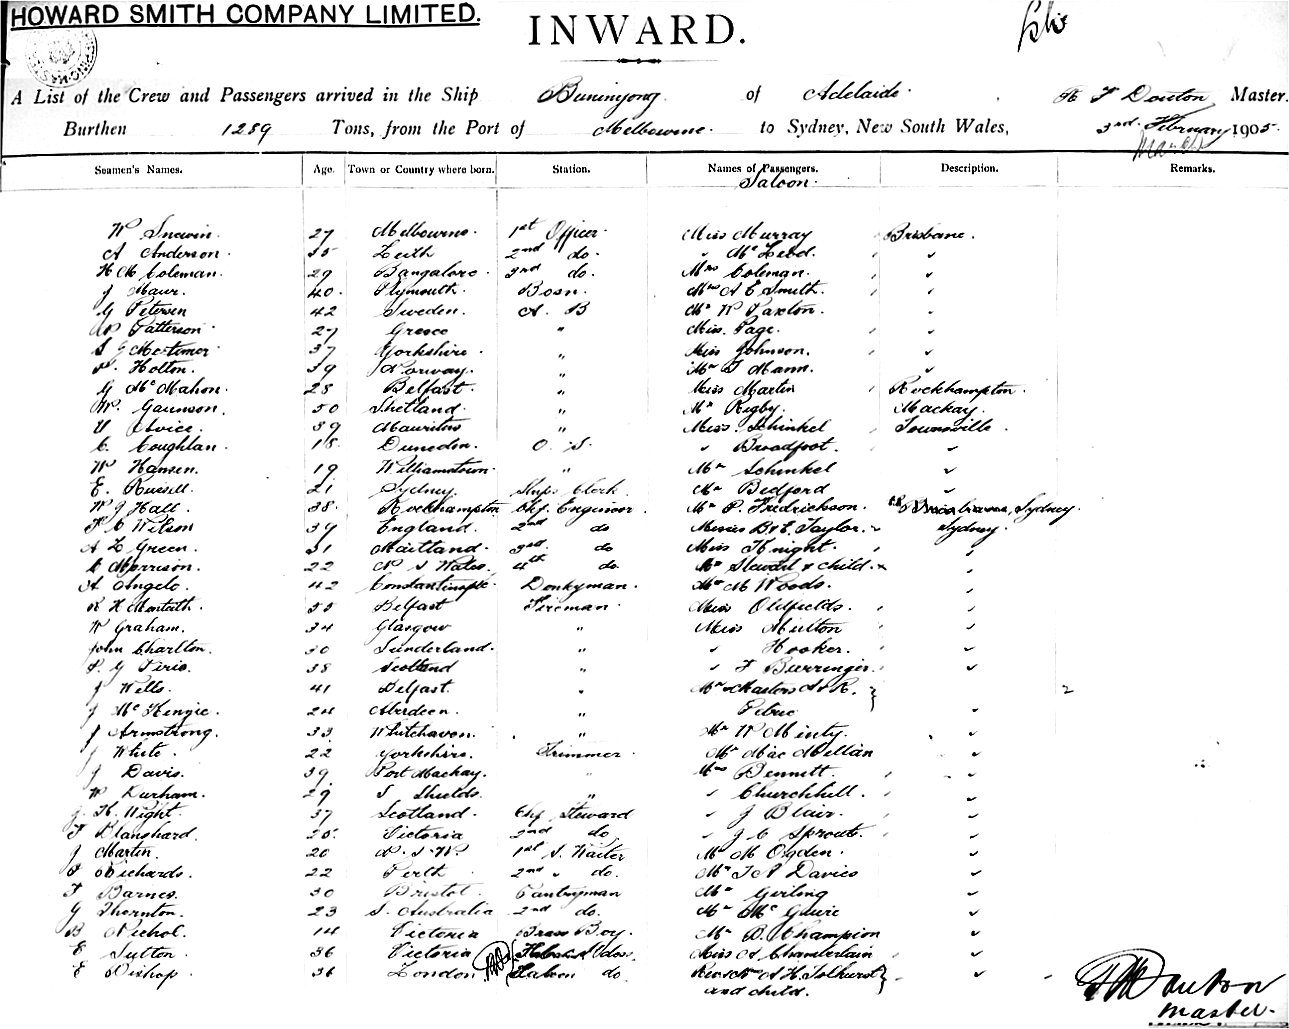 HOWARD SMITH COMPANY LIMITED.
INWARD.
A List of the Crew and Passengers arrived in the Ship Buninyong of Adelaide. Douton, Master.
Burthen 1289 Tons, from the Port of Melbourne. to Sydney, New South Wales, 3rd February 1905.
March
Seamen's Names. Age. Town or Country where born. Station. Names of Passengers. Description. Remarks.
Saloon.
W 27 Melbourne. 1st Officer. Miss Murray Brisbane.
A Anderson. 35 Leith 2nd do. " McLeod. "
H M Coleman. 29 Bangalore. 3rd do. Mrs Coleman. "
J Maur. 40. Plymouth. Bosn. Mrs A E Smith. "
G Petersen 42 Sweden. A. B Mr W Paxton. "
Patterson 27 Greece " Miss Page. "
S G Mortimer 37 Yorkshire. " Miss Johnson. "
Holton. 39 Norway. " Mr Mann. "
G McMahon. 28 Belfast. " Miss Martin Rockhampton.
W. Gaunson. 50 Shetland. " Mr Rigby. Mackay.
39 Mauritius " Miss. Schinkel Townsville.
C. Coughlan. 18. Dunedin. O. S. " Broadfoot. "
W Hansen. 19 Williamstown. " Mr Schinkel "
E. Russell. 21 Sydney. Ships Clerk Mr Bedford "
W J Hall. 38. Rockhampton Chf. Engineer. Mr P. Fredrickson. Sydney.
Wilson 39 England. 2nd do Misses B & E Taylor. Sydney.
A L Green. 31 Maitland. 3rd. do Miss Knight. "
C Morrison. 22 N S Wales. 4th do. Stewart & child. "
A Angelo. 42 Constantinople. Donkyman. M Woods. "
R H Monteith. 55 Belfast Fireman. Miss Oldfields. "
W Graham. 34 Glasgow " Miss Milton "
John Charlton. 30 Sunderland. " " Hooker. "
G 38 Scotland " " F Burringer. "
J Wells. 41 Belfast. " Mr & Masters A & R. } 2
J McKenzie. 24 Aberdeen. " Petrie "
J Armstrong. 33 Whitehaven. " Mr W Minty. "
J White. 22 Yorkshire. Trimmer. Mr Mac Millan "
J Davis. 39 Port Mackay. " Mrs Bennett. "
W Durham. 29 S Shields. " " Churchhill. "
J. H. Wight. 37 Scotland. Chf Steward " J Blair. "
F Blanshard. 25. Victoria 2nd do " J C Sproule. "
J Martin. 20 N. S. W. 1st S. Waiter Mr M Ogden. "
Richards. 22 Perth 2nd " do. Mr J A Davies "
F Barnes. 30 Bristol. Pantryman Mr Girling "
G Thornton. 23 S. Australia 2nd do. Mr McGuire "
B Nichol. 14 Victoria Brass Boy. Mr B. Champion "
E Sutton 36 Victoria Miss A Chamberlain "
E Bishop 36 London Saloon do. A H. Tolhurst } "
and child.
Douton
Master.